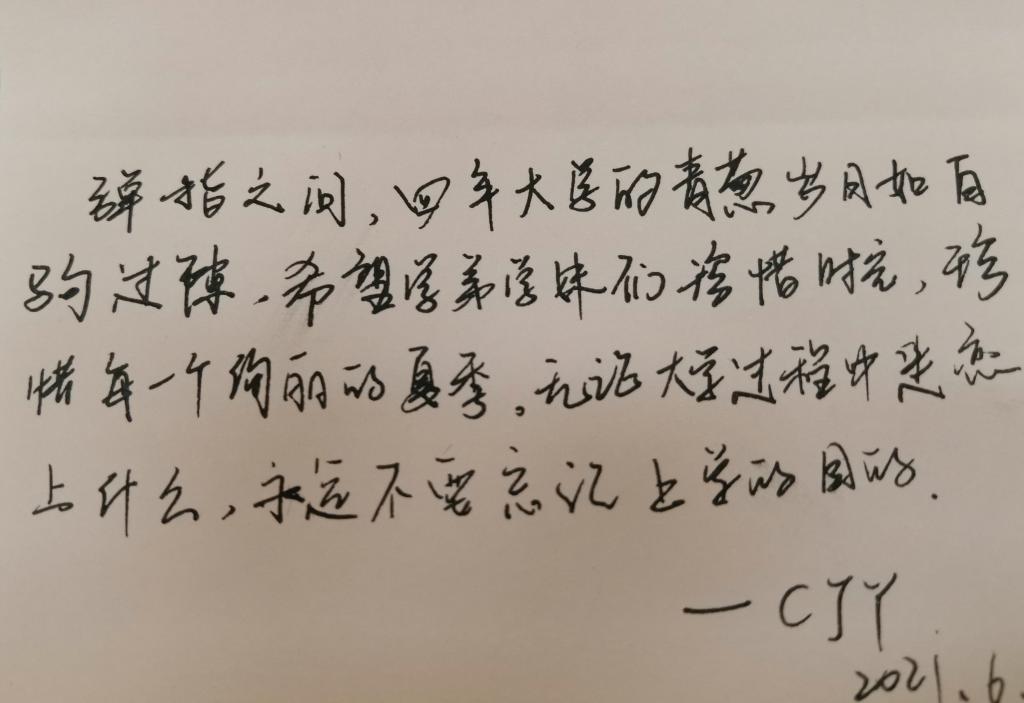 弹指之间，四年大学的青葱岁月如白
驹过隙，希望学弟学妹们珍惜时光，珍
惜每一个绚丽的夏季。无论大学过程中迷恋
上什么，永远不要忘记上学的目的.
—CJY
2021.6.